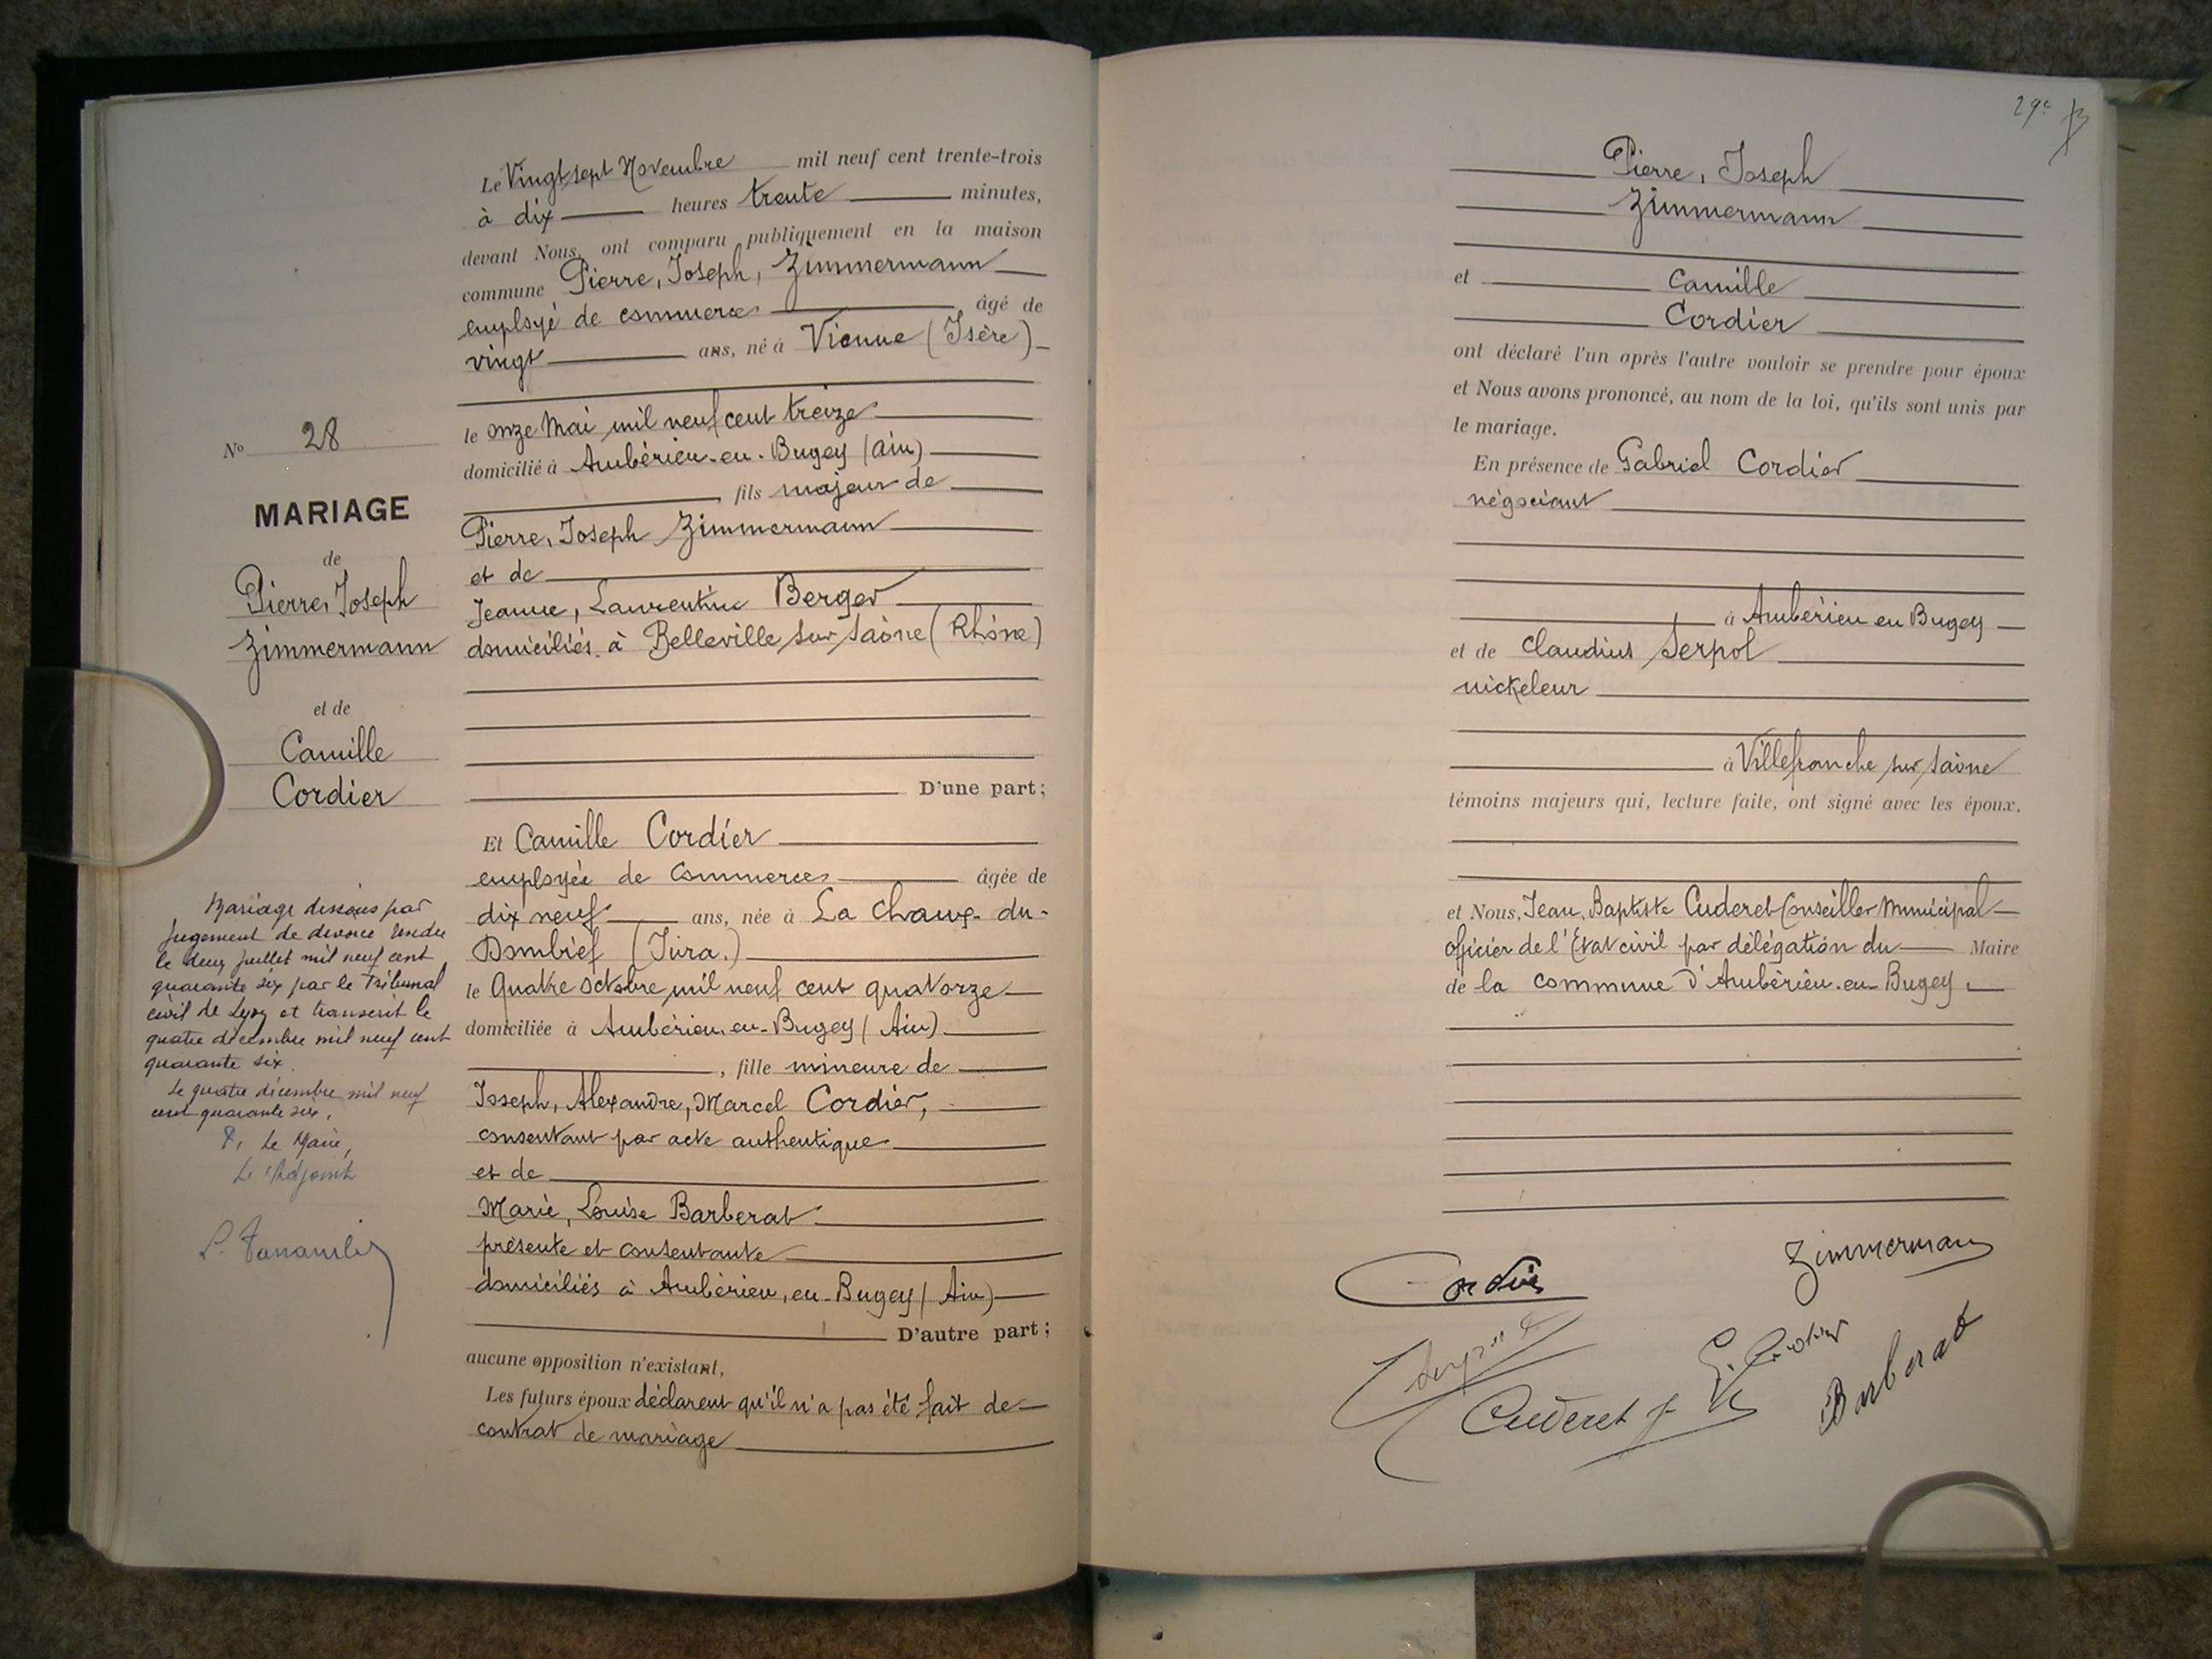 N° 28
MARIAGE
de
Pierre, Joseph
Zimmermann
et de
Camille
Cordier
Mariage dissous par
jugement de divorce rendu
le deux juillet mil neuf cent
quarante six par le Tribunal
civil de Lyon et transcrit le
quatre décembre mil neuf cent
quarante six.
Le quatre décembre mil neuf
cent quarante six.
P. Le Maire,
L'Adjoint
Le Vingt sept Novembre mil neuf cent trente-trois
à dix heures trente minutes,
devant Nous, ont comparu publiquement en la maison
commune Pierre, Joseph, Zimmermann
employé de commerce âgé de
vingt ans, né à Vienne (Isère)
le onze Mai mil neuf cent treize
domicilié à Ambérieu-en-Bugey (Ain)
, fils majeur de
Pierre, Joseph Zimmermann
et de
Jeanne, Laurentine Berger
domiciliés à Belleville sur Saône (Rhône)
D'une part;
Et Camille Cordier
employée de Commerce âgée de
dix neuf ans, née à La Chaux-du-
Dombief (Jura.)
le Quatre octobre mil neuf cent quatorze
domiciliée à Ambérieu-en-Bugey (Ain)
, fille mineure de
Joseph, Alexandre, Marcel Cordier,
consentant par acte authentique
et de
Marie, Louise Barberat
présente et consentante
domiciliés à Ambérieu-en-Bugey (Ain)
D'autre part;
aucune opposition n'existant,
Les futurs époux déclarent qu'il n'a pas été fait de
contrat de mariage
29e
Pierre, Joseph
Zimmermann
et Camille
Cordier
ont déclaré l'un après l'autre vouloir se prendre pour époux
et Nous avons prononcé, au nom de la loi, qu'ils sont unis par
le mariage.
En présence de Gabriel Cordier
négociant
à Ambérieu en Bugey
et de Claudius Serpol
nickeleur
à Villefranche sur Saône
témoins majeurs qui, lecture faite, ont signé avec les époux.
et Nous, Jean, Baptiste Cuderet Conseiller Municipal
officier de l'Etat civil par délégation du Maire
de la commune d'Ambérieu-en-Bugey
Cordier
Zimmermann
G. Cordier
Cuderet J
Barberat